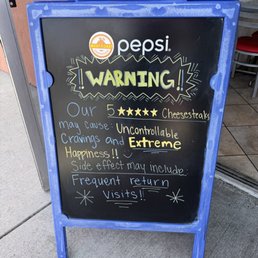 pepsi
!WARNING!!
Our 5 ★★★★★ Cheesesteaks
may cause Uncontrollable
Cravings and Extreme
Happiness!!
Side effect may include
Frequent return
Visits!!